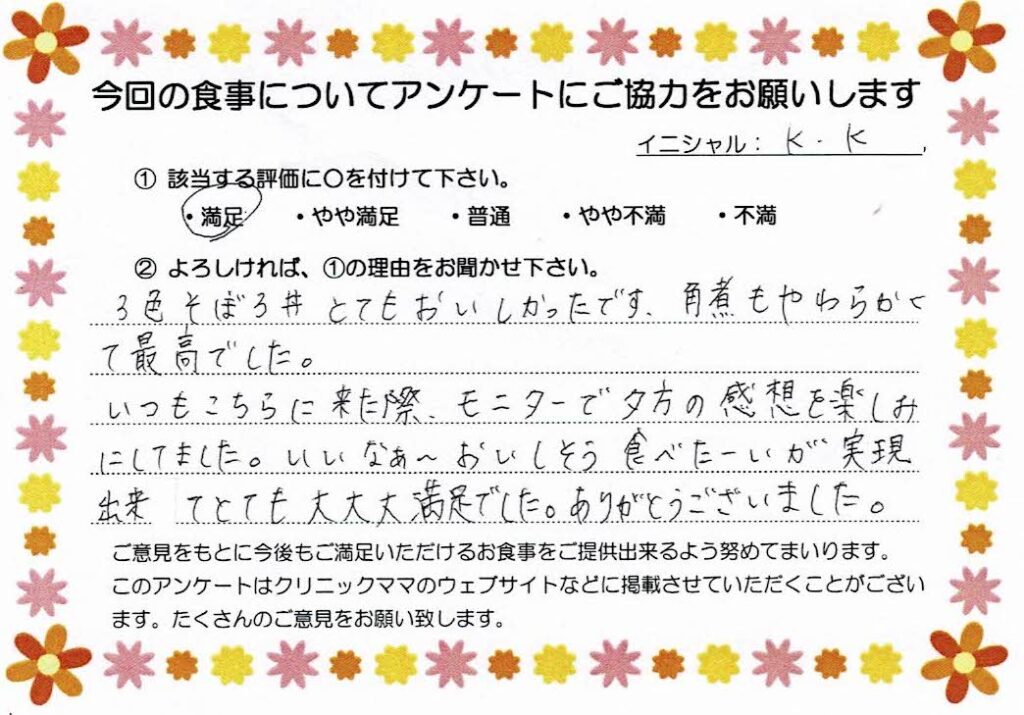 今回の食事についてアンケートにご協力をお願いします
イニシャル： K・K
① 該当する評価に〇を付けて下さい。
・満足 ・やや満足 ・普通 ・やや不満 ・不満
② よろしければ、①の理由をお聞かせ下さい。
3色そぼろ丼とてもおいしかったです、角煮もやわらかく
て最高でした。
いつもこちらに来た際、モニターで夕方の感想を楽しみ
にしてました。いいなぁ〜おいしそう食べたーいが実現
出来 てとても大大大満足でした。ありがとうございました。
ご意見をもとに今後もご満足いただけるお食事をご提供出来るよう努めてまいります。
このアンケートはクリニックママのウェブサイトなどに掲載させていただくことがござい
ます。たくさんのご意見をお願い致します。